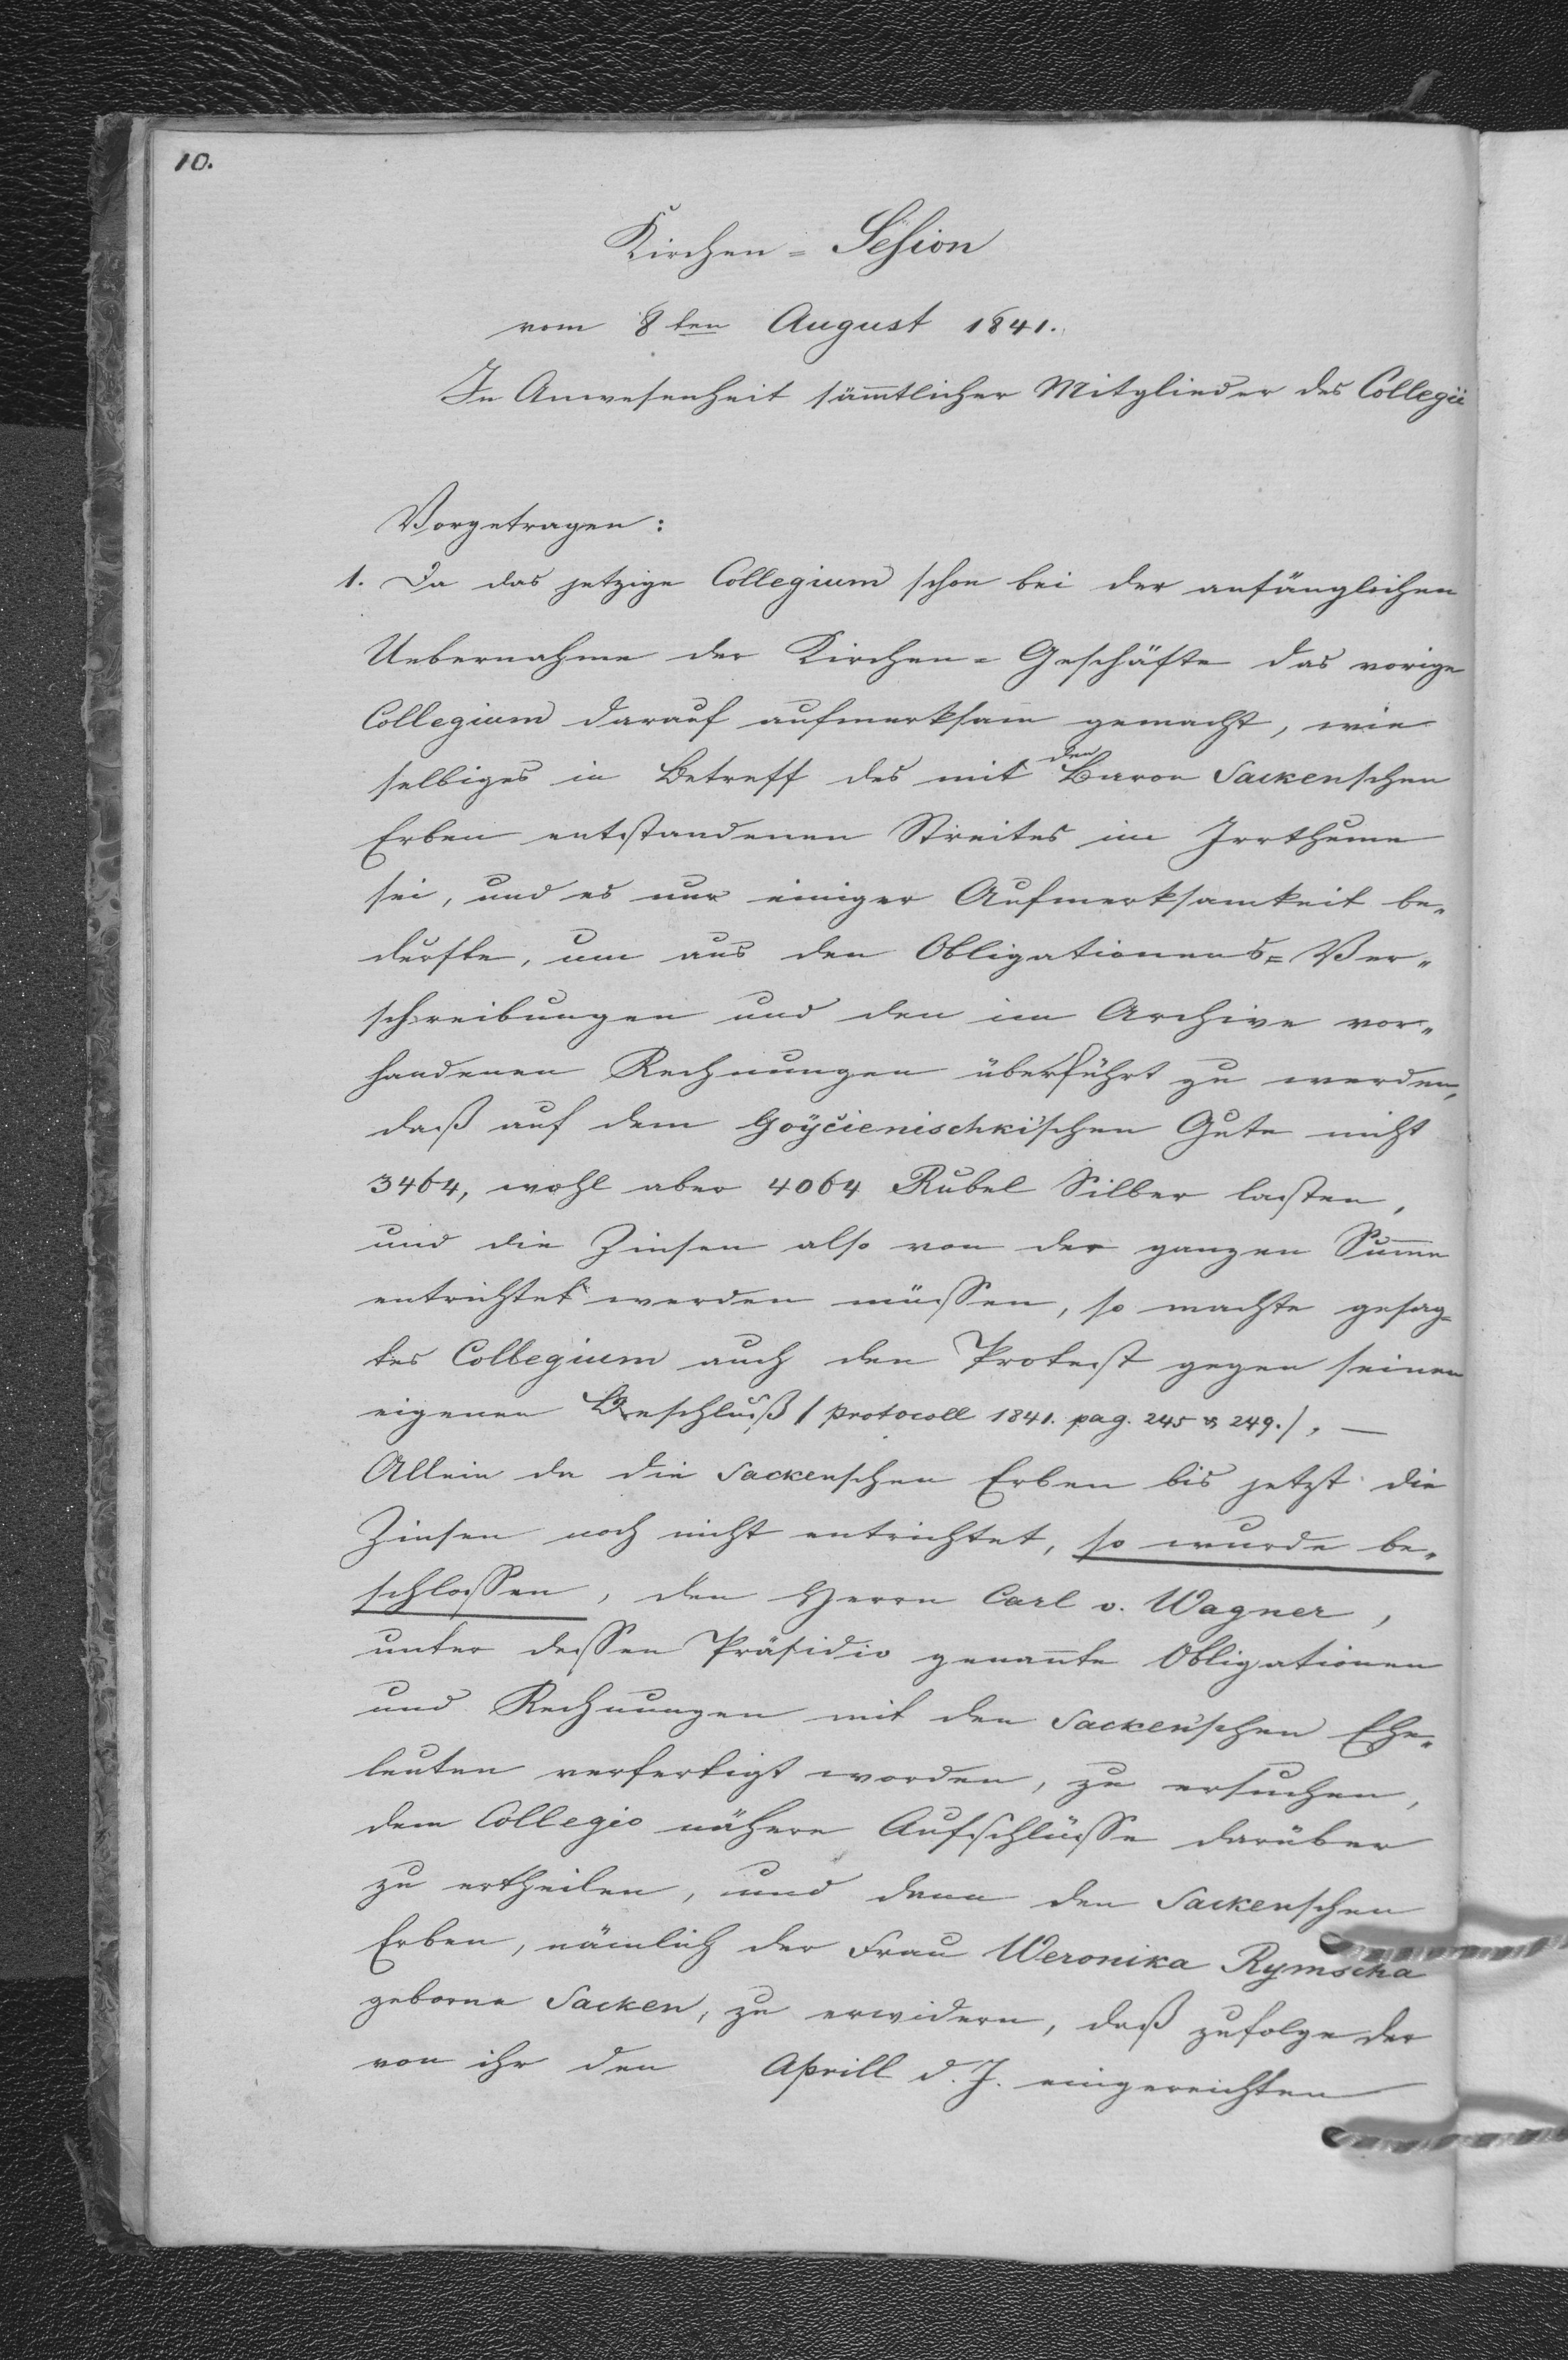 10.
Kirchen=Session
vom 8ten August 1841.
In Anwesenheit sämmtlicher Mitglieder des Collegii
Vorgetragen:
1. Da das jetzige Collegium schon bei der anfänglichen
Uebernahme der Kirchen=Geschäfte das vorige
Collegium darauf aufmerksam gemacht, wie
den
selbiges in Betreff des mit Baron Sackenschen
Erben entstandenen Streites im Irrthume
sei, und es nur einiger Aufmerksamkeit be„
durfte, um aus den Obligationens=Ver„
schreibungen und den im Archive vor„
handenen Rechnungen überführt zu werden,
daß auf dem Goÿcienischki'schen Gute nicht
3464, wohl aber 4064 Rubel Silber lasten,
und die Zinsen also von der ganzen Summe
entrichtet werden müssen, so machte gesag=
tes Collegium auch den Protest gegen seinen
eigenen Beschluß /Protocoll 1841. pag. 245 & 249./, —
Allein da die Sackenschen Erben bis jetzt die
Zinsen noch nicht entrichtet, so wurde be„
schlossen, den Herrn Carl v. Wagner,
unter dessen Präsidio genannte Obligationen
und Rechnungen mit den Sacken'schen Ehe„
leuten verfertigt worden, zu ersuchen,
dem Collegio nähere Aufschlüsse darüber
zu ertheilen, und dann den Sackenschen
Erben, nämlich der Frau Weronika Rymscha
geborne Sacken, zu erwidern, daß zufolge der
von ihr den Aprill d. J. eingereichten